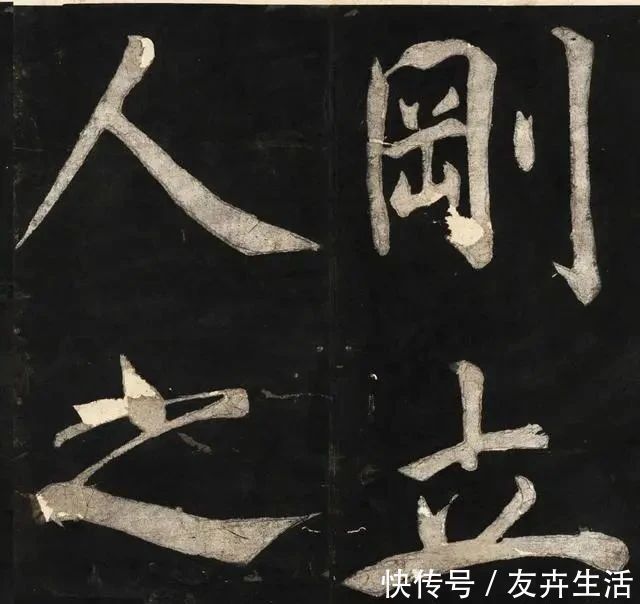 剛立
人之
快传号 / 友卉生活